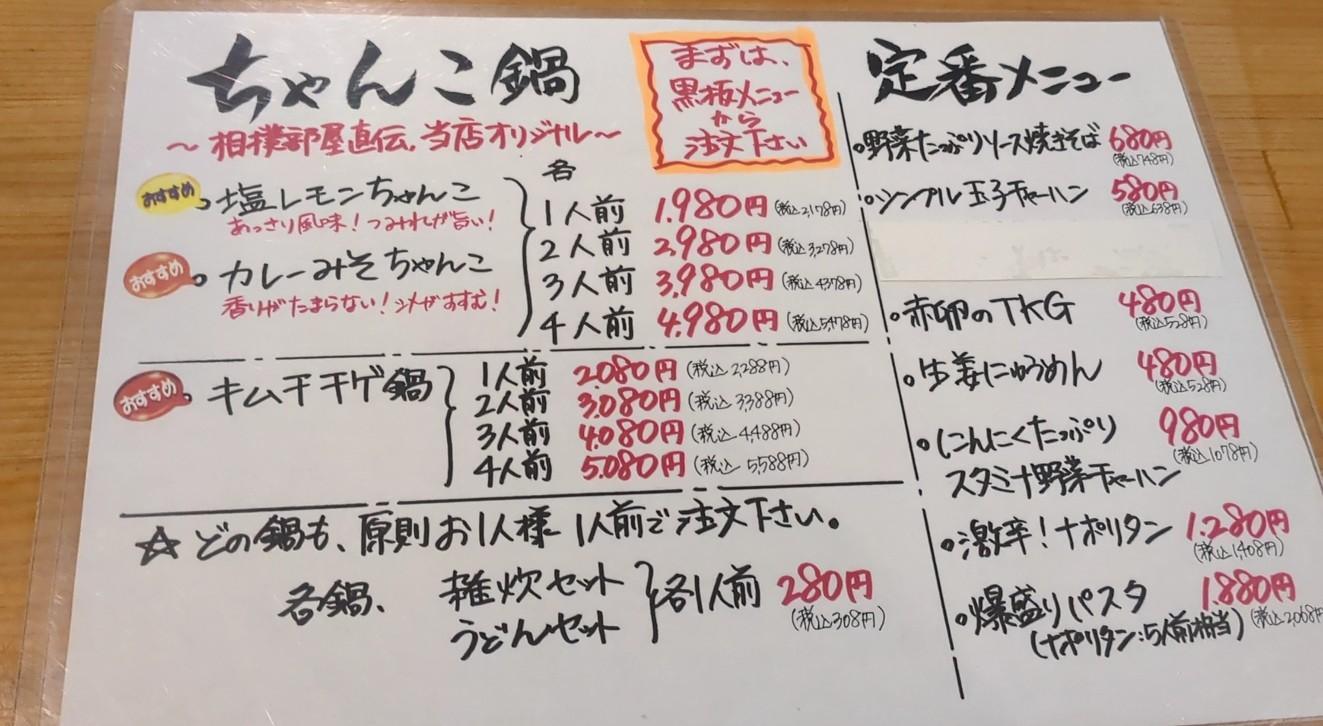 ちゃんこ鍋
～相撲部屋直伝.当店オリジナル～
まずは、
黒板メニュー
から
注文下さい
おすすめ
塩レモンちゃんこ
あっさり風味！つみれが旨い！
おすすめ
カレーみそちゃんこ
香りがたまらない！シメがすすむ！
各
1人前 1.980円(税込2,178円)
2人前 2,980円(税込3,278円)
3人前 3,980円(税込4378円)
4人前 4.980円(税込5,478円)
おすすめ
キムチチゲ鍋
1人前 2.080円(税込2,288円)
2人前 3,080円(税込3,388円)
3人前 4.080円(税込4,488円)
4人前 5.080円(税込5,588円)
☆どの鍋も、原則お1人様1人前で注文下さい。
各鍋、
雑炊セット
うどんセット
各1人前 280円
(税込308円)
定番メニュー
・野菜たっぷりソース焼きそば 680円
(税込748円)
・シンプル玉子チャーハン 580円
(税込638円)
・赤卵のTKG 480円
(税込528円)
・生姜にゅうめん 480円
(税込528円)
・にんにくたっぷり 980円
スタミナ野菜チャーハン (税込1078円)
・激辛！ナポリタン 1.280円
(税込1,408円)
・爆盛りパスタ 1.880円
(ナポリタン:5人前相当) (税込2,068円)